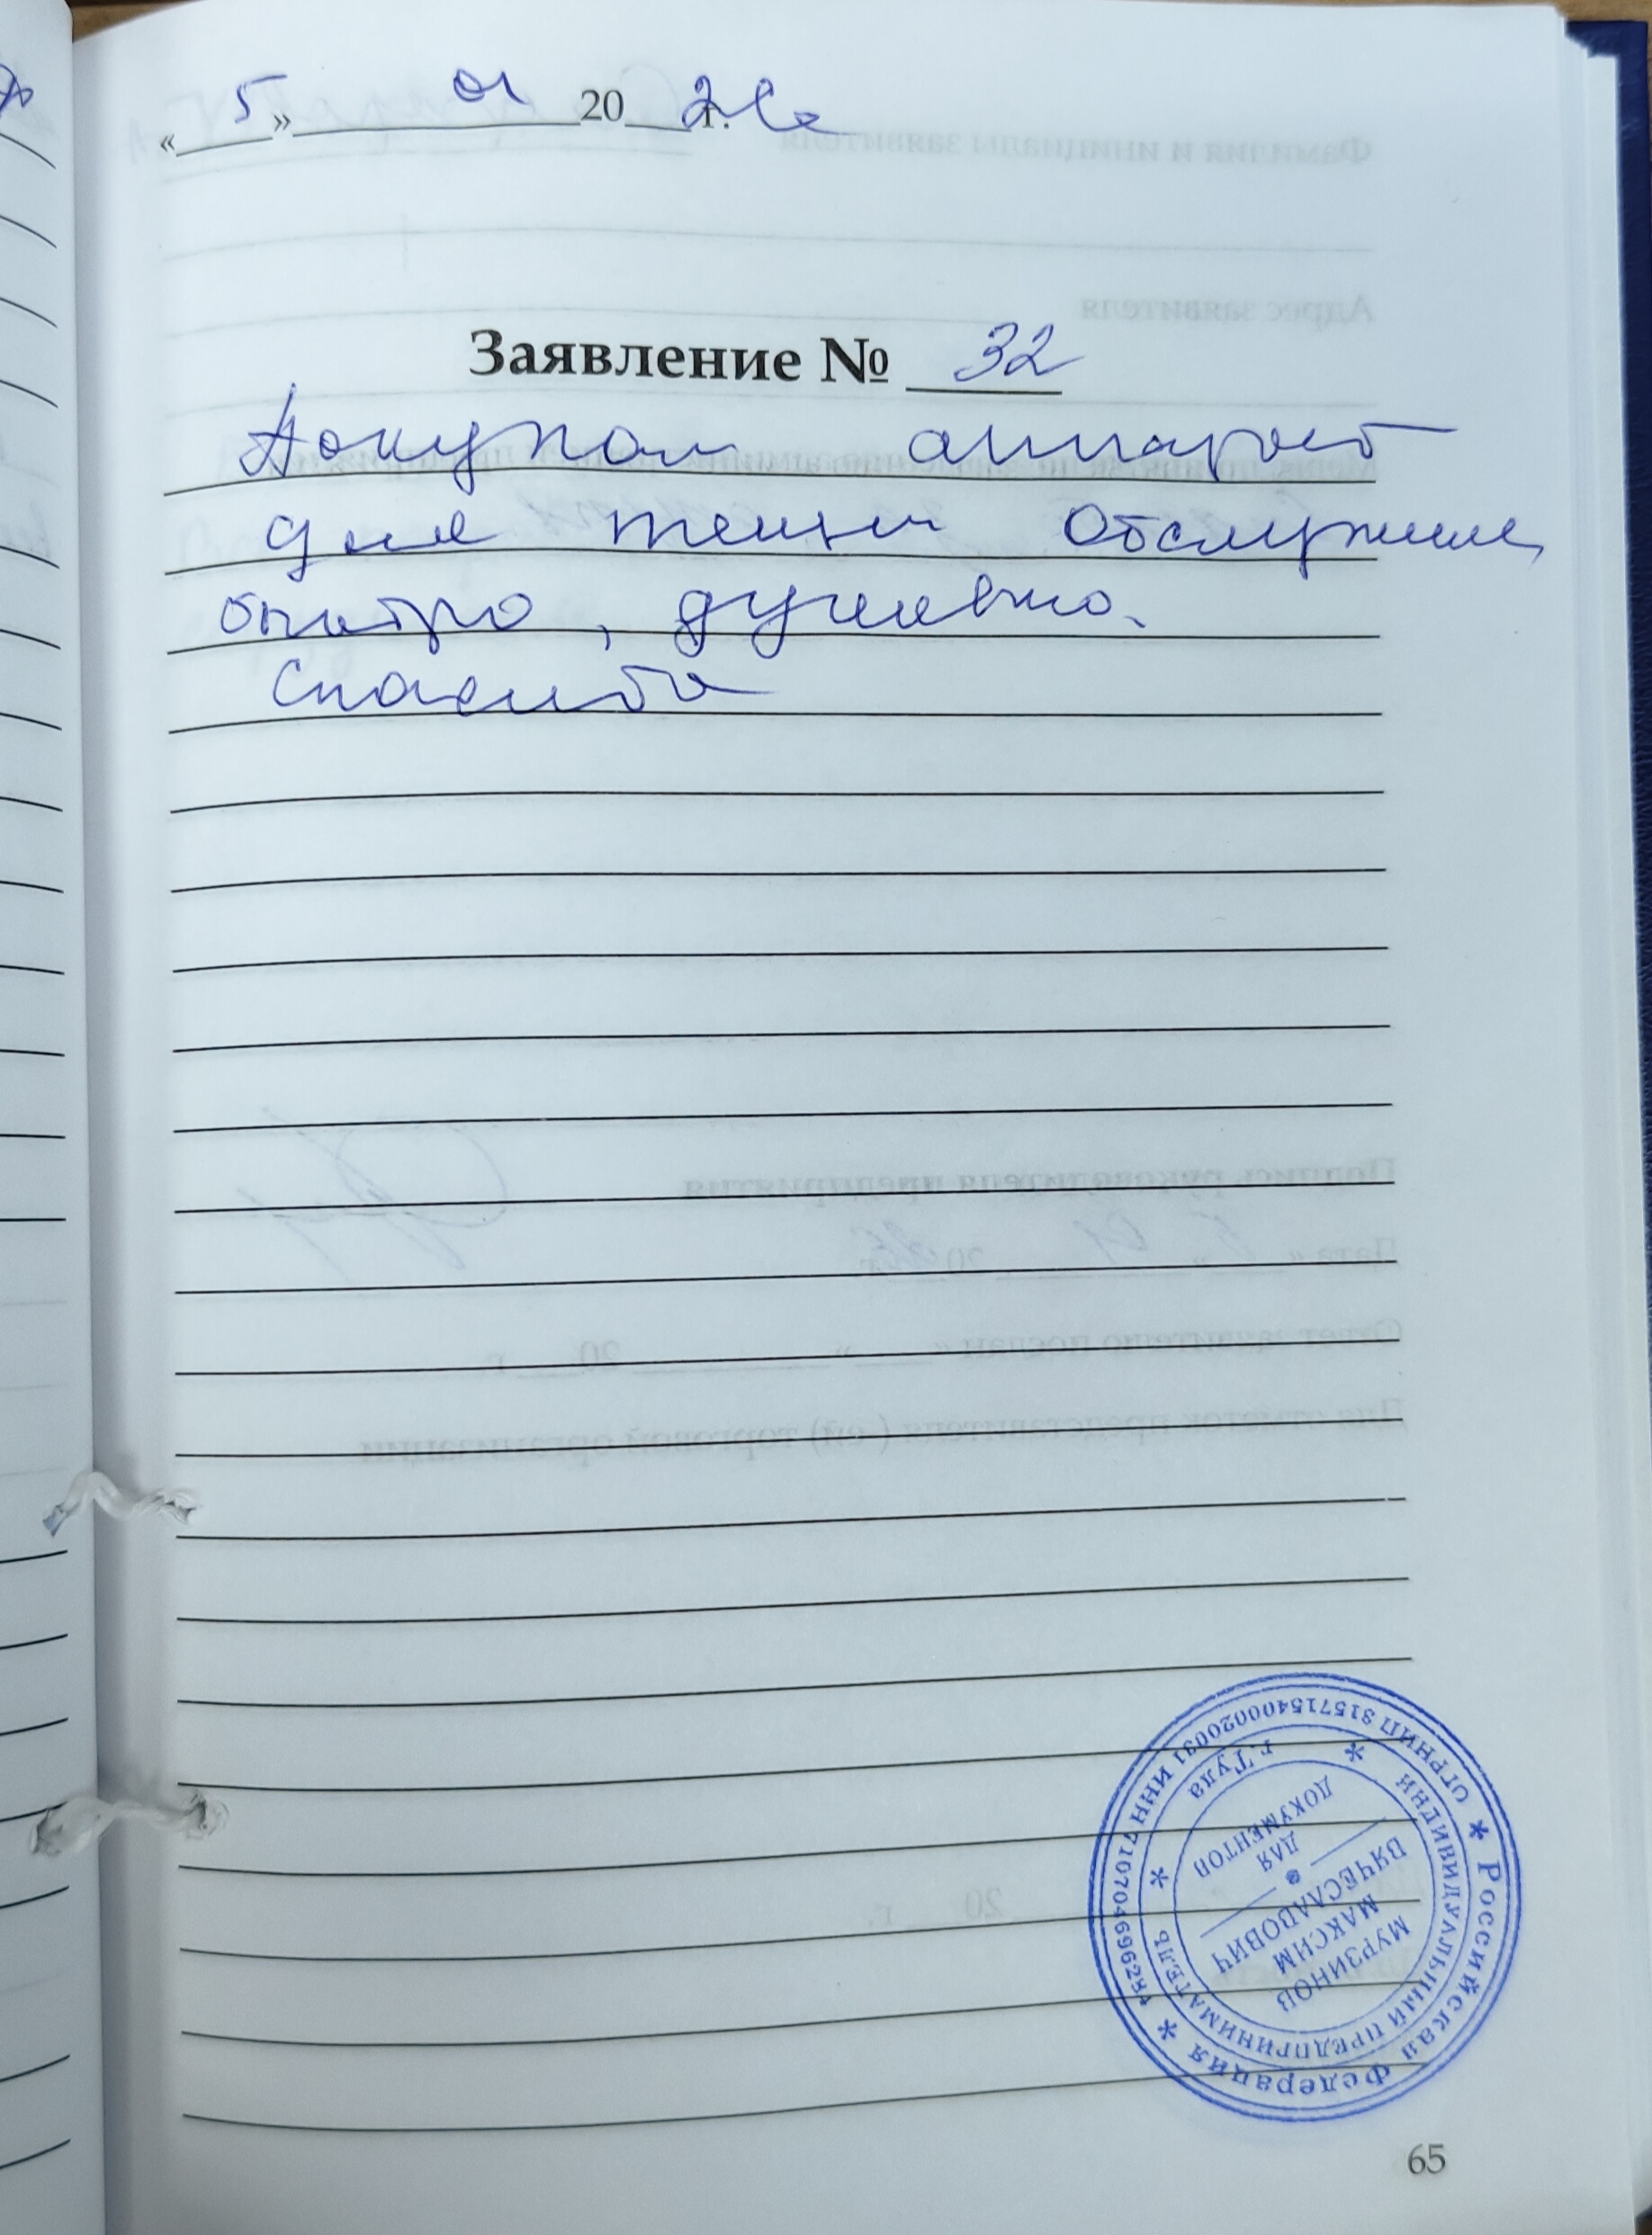 «5» 01 2026 г.
Заявление № 32
Покупал аппарат
для тёщи обслужили
быстро, душевно.
Спасибо
* Российская Федерация *
ОГРНИП 315715400020031 ИНН 710704696284
ИНДИВИДУАЛЬНЫЙ ПРЕДПРИНИМАТЕЛЬ
* г. Тула *
МУРЗИНОВ
МАКСИМ
ВЯЧЕСЛАВОВИЧ
ДЛЯ
ДОКУМЕНТОВ
65